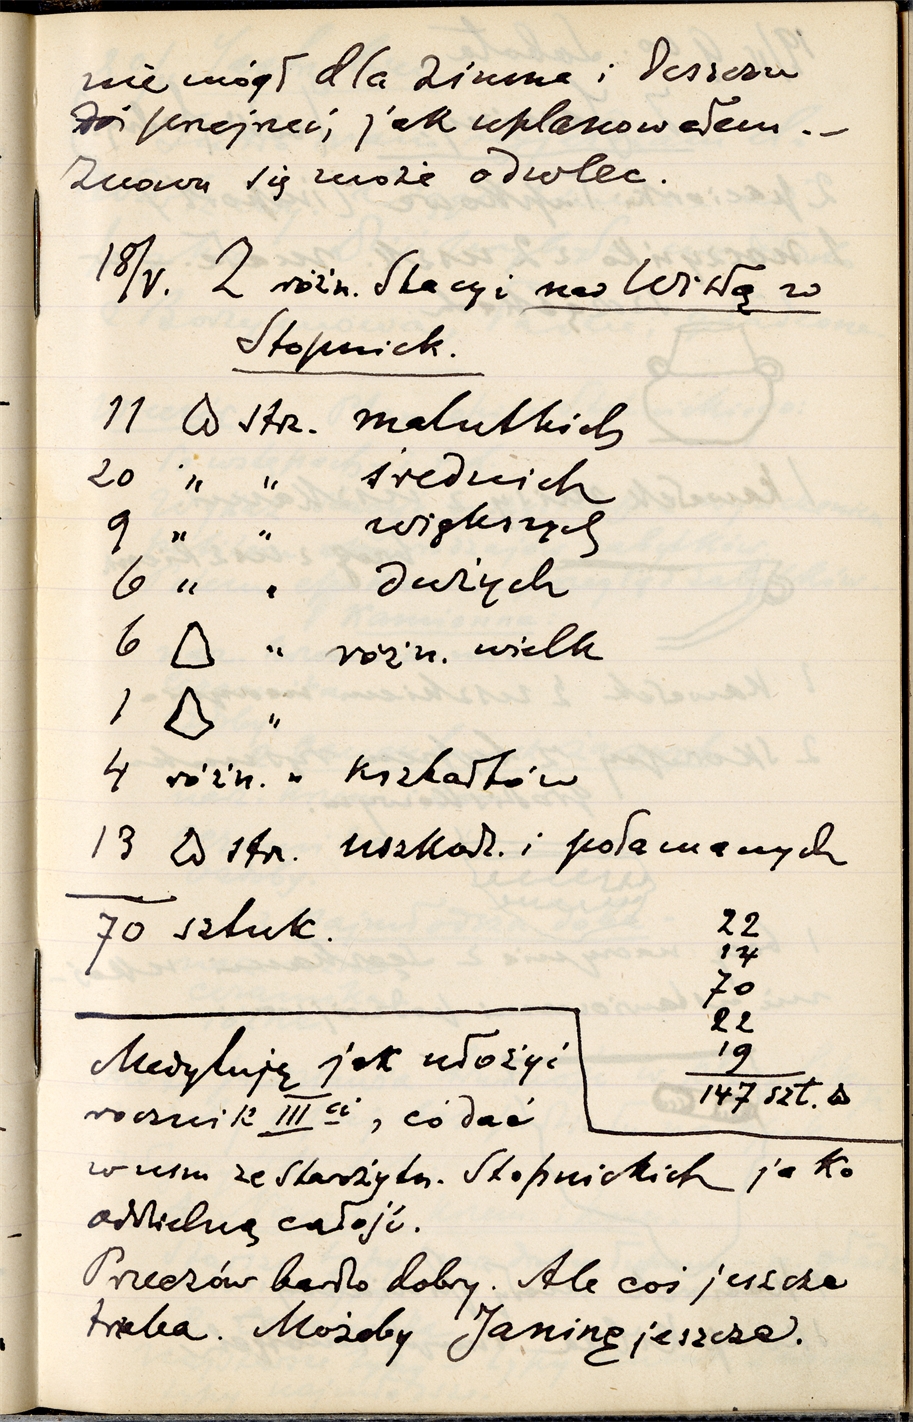 nie mógł dla zimna i deszczu
dziś przejrzeć, jak uplanowałem. –
Znowu się może odwlec.
18/V. Z różn. Stacyi nad Wisłą w
Stopnick.
11 △ str. malutkich
20 " " średnich
9 " " większych
6 " " dużych
6 △ " różn. wielk
1 △ "
4 różn. " kształtów
13 △ str. uszkodz. i połamanych
70 sztuk.
22
14
70
22
19
147 szt. △
Medytuję jak ułożyć
rocznik III ci, co dać
w nim ze Starożytn. Stopnickich jako
oddzielną całość.
Przeczów bardzo dobry. Ale coś jeszcze
trzeba. Możeby Janinę jeszcze.